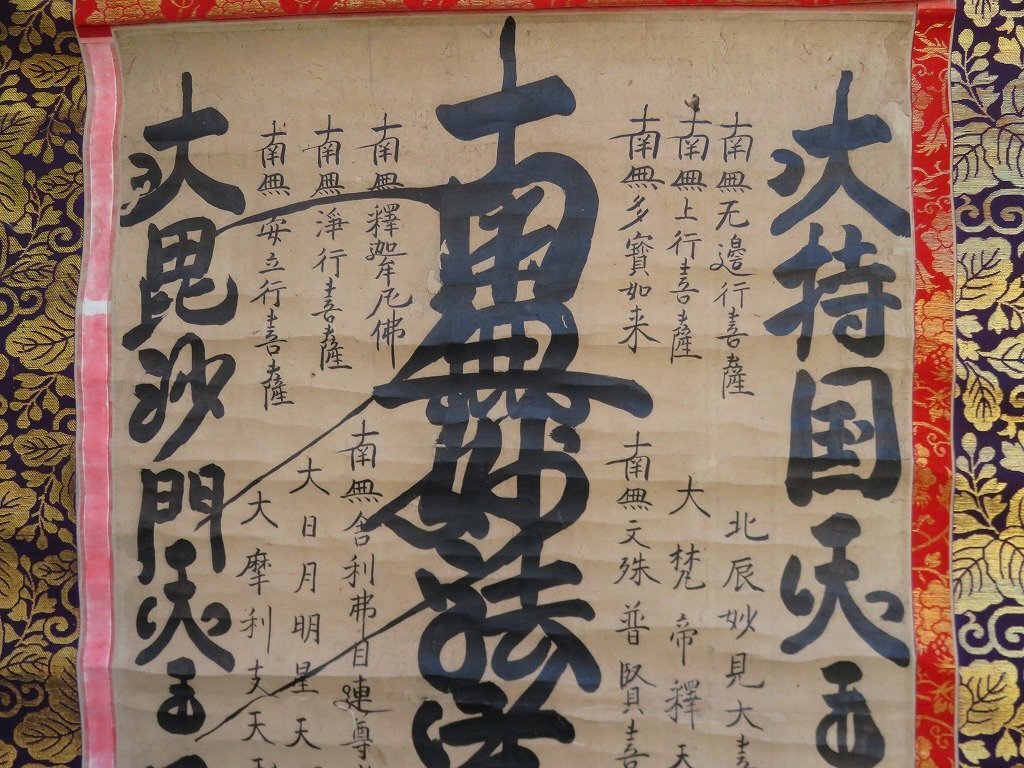 大持国天王
南無无邊行菩薩
南無上行菩薩
南無多寳如来
北辰妙見大菩
大梵帝釋天
南無文殊普賢菩
南無妙法蓮
南無釋迦牟尼佛
南無淨行菩薩
南無安立行菩薩
南無舎利弗目連尊
大日月明星天
大摩利支天
大毘沙門天王